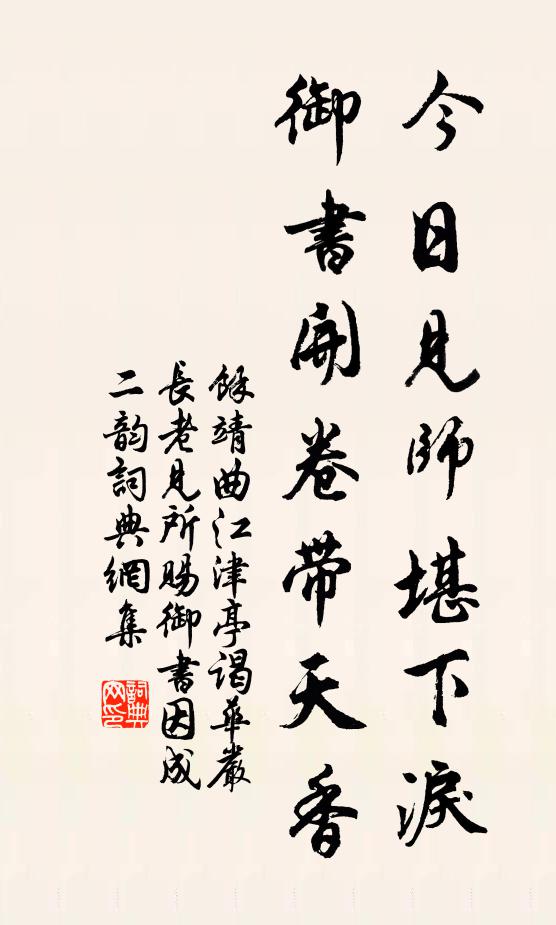 今日見師堪下淚
御書開卷帶天香
餘靖曲江津亭謁華嚴
長老見所賜御書因成
二韵詞典網集
詞典網印